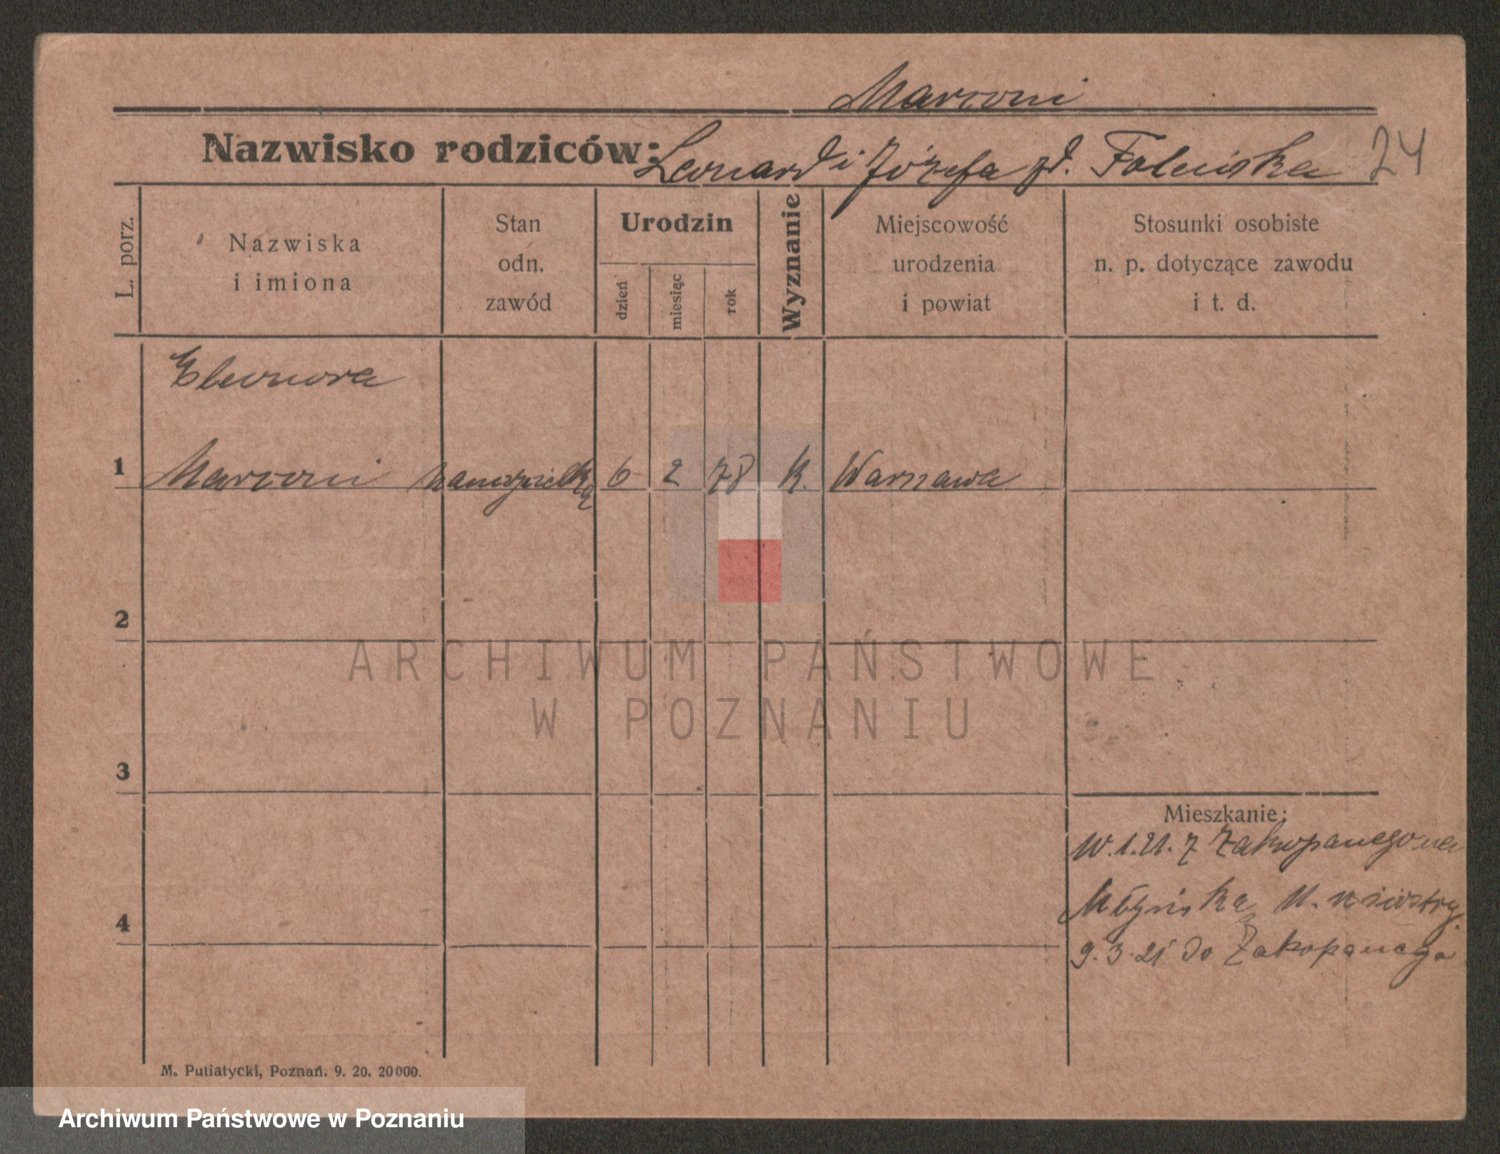 Marconi
Nazwisko rodziców: Leonard i Józefa zd. 24
L. porz.
Nazwiska
i imiona
Stan
odn.
zawód
Urodzin
dzień
miesiąc
rok
Wyznanie
Miejscowość
urodzenia
i powiat
Stosunki osobiste
n. p. dotyczące zawodu
i t. d.
Eleonora
1 Marconi 6 2 78 k. Warszawa
2
ARCHIWUM PAŃSTWOWE
W POZNANIU
3
Mieszkanie:
10.1.21. z Zakopanego na
4
9.3.21 do Zakopanego
M. Putiatycki, Poznań. 9. 20. 20000.
Archiwum Państwowe w Poznaniu